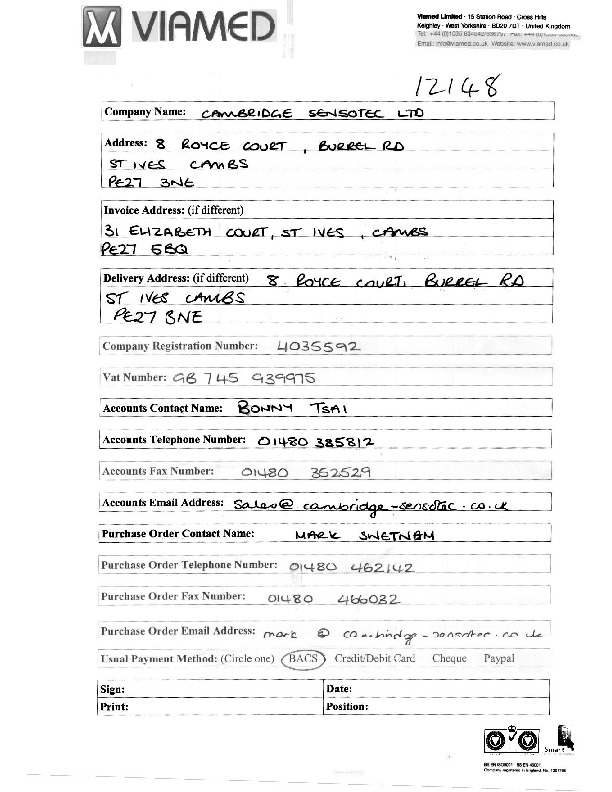 VIAMED
Viamed Limited · 15 Station Road · Cross Hills
Keighley · West Yorkshire · BD20 7DT · United Kingdom
Email: info@viamed.co.uk Website: www.viamed.co.uk
12148
Company Name: CAMBRIDGE SENSOTEC LTD
Address: 8 ROYCE COURT, BURREL RD
ST IVES CAMBS
PE27 3NE
Invoice Address: (if different)
31 ELIZABETH COURT, ST IVES, CAMBS
PE27 5BQ
Delivery Address: (if different) 8 ROYCE COURT, BURREL RD
ST IVES CAMBS
PE27 3NE
Company Registration Number: 4035592
Vat Number: GB 745 939975
Accounts Contact Name: BONNY TSAI
Accounts Telephone Number: 01480 385812
Accounts Fax Number: 01480 352529
Accounts Email Address: Sales@cambridge-sensotec.co.uk
Purchase Order Contact Name: MARK SWETNAM
Purchase Order Telephone Number: 01480 462142
Purchase Order Fax Number: 01480 466032
Purchase Order Email Address: mark @ cambridge-sensotec.co.uk
Usual Payment Method: (Circle one) BACS Credit/Debit Card Cheque Paypal
Sign: Date:
Print: Position:
Smart